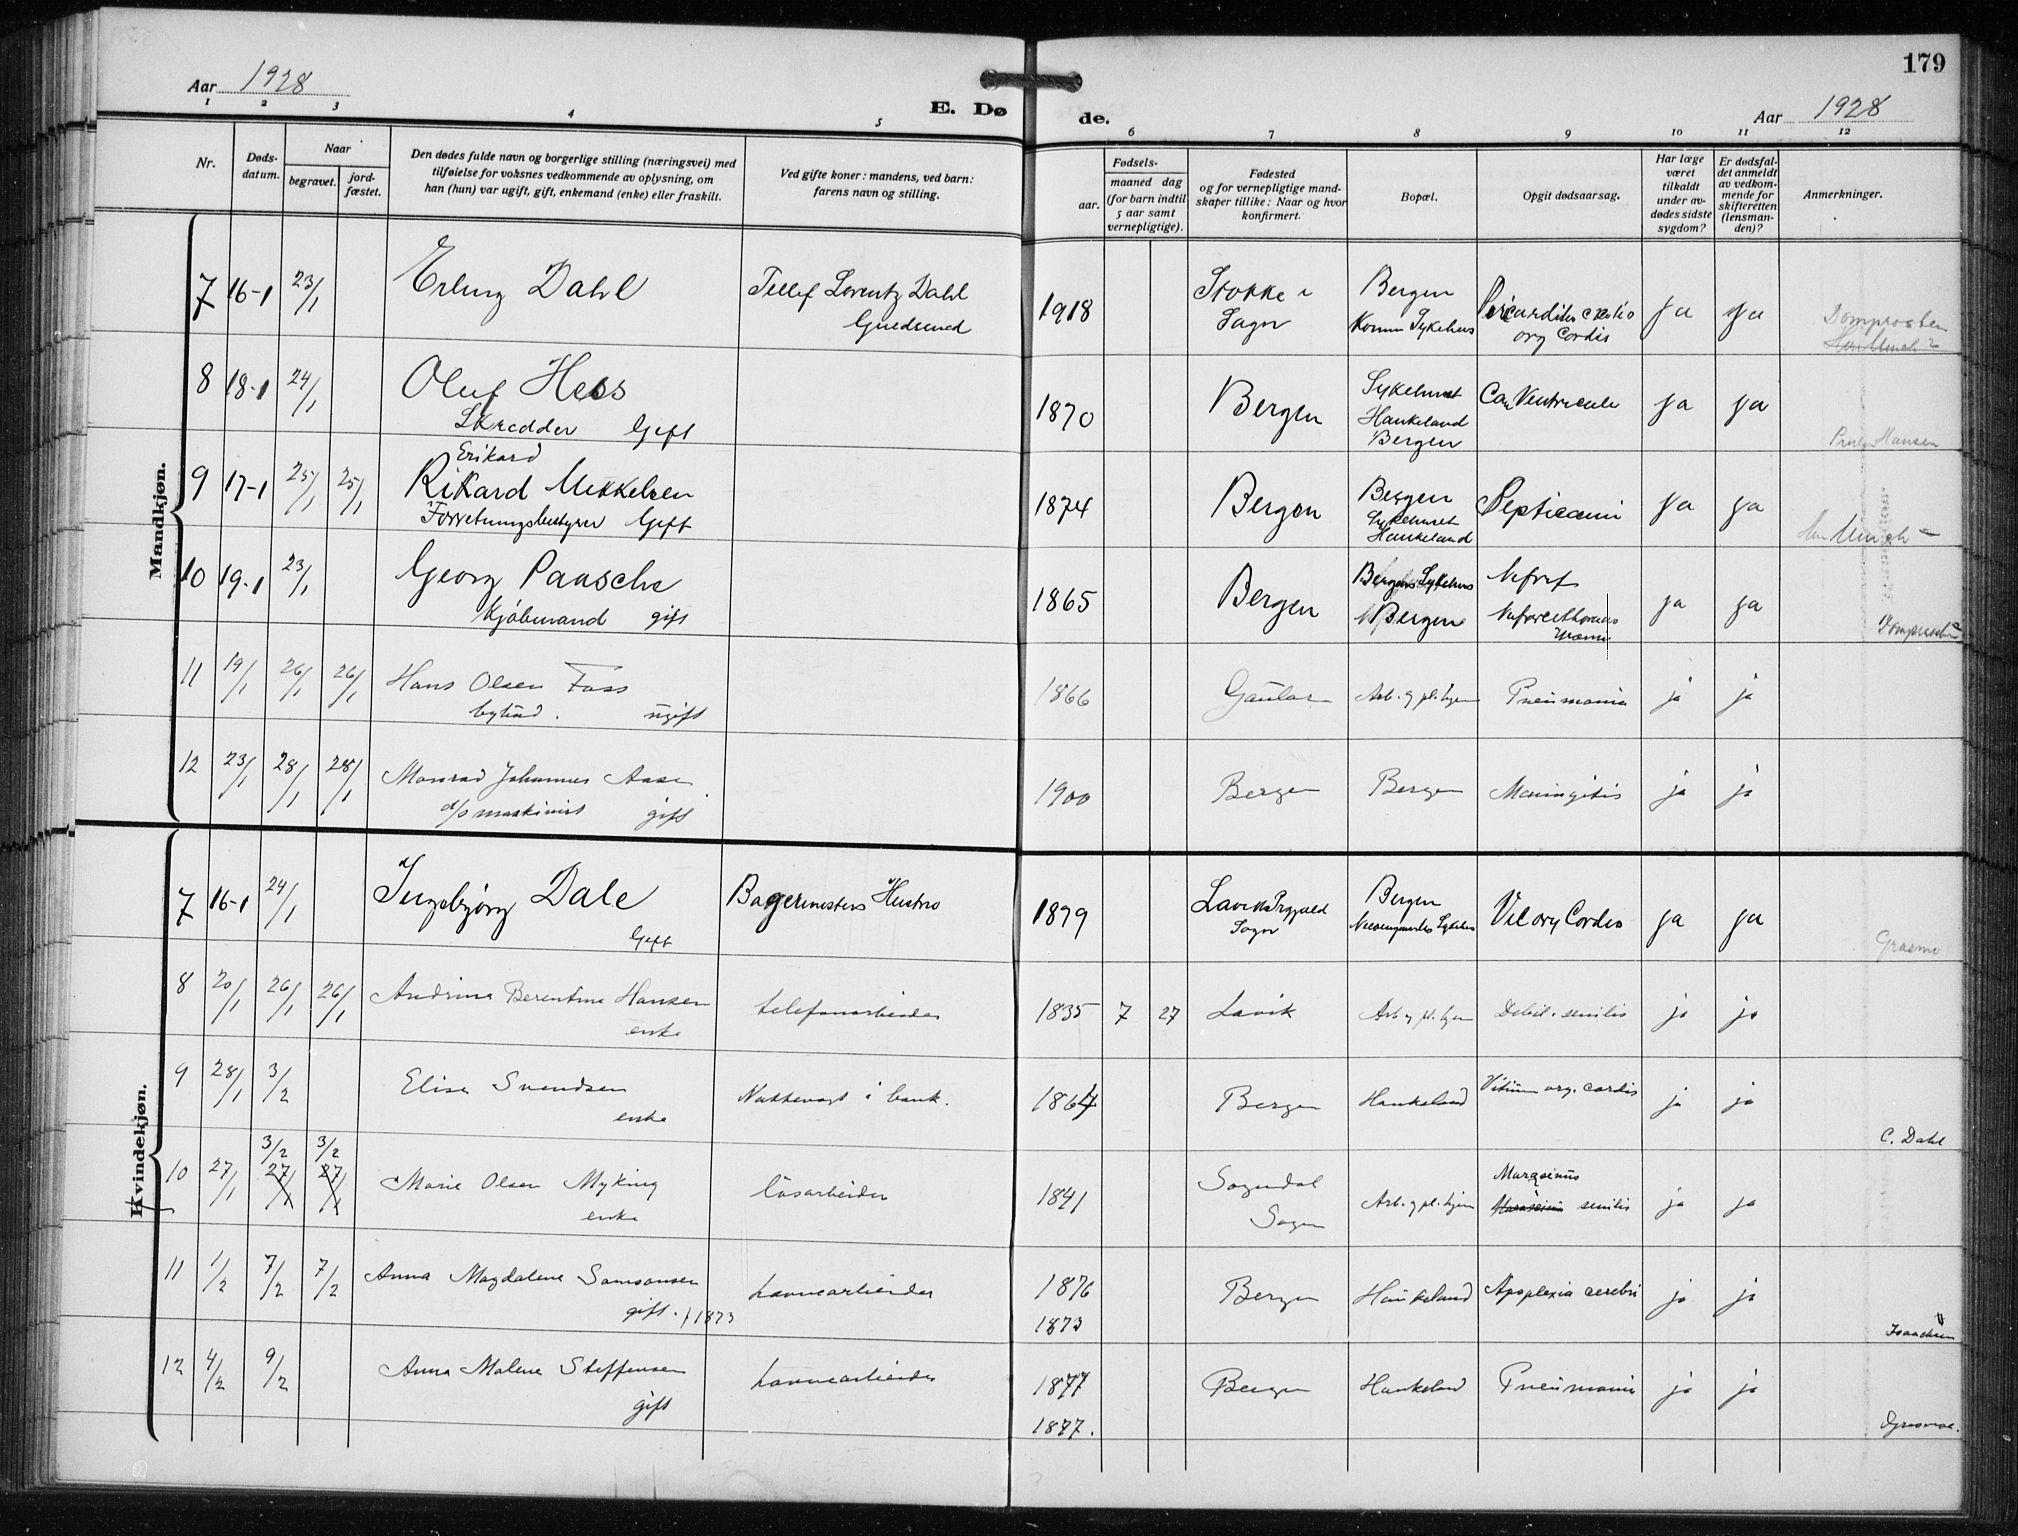 179
Aar 1928
E. Dø de.
Aar 1928
1 2 3 4 5 6 7 8 9 10 11 12
Nr.
Døds-
datum.
Naar
begravet.
jord-
fæstet.
Den dødes fulde navn og borgerlige stilling (næringsvei) med
tilføielse for voksnes vedkommende av oplysning, om
han (hun) var ugift, gift, enkemand (enke) eller fraskilt.
Ved gifte koner: mandens, ved barn:
farens navn og stilling.
Fødsels-
aar.
maaned dag
(for barn indtil
5 aar samt
vernepligtige).
Fødested
og for vernepligtige mand-
skaper tillike: Naar og hvor
konfirmert.
Bopæl.
Opgit dødsaarsag.
Har læge
været
tilkaldt
under av-
dødes sidste
sygdom?
Er dødsfal-
det anmeldt
av vedkom-
mende for
skifteretten
(lensman-
den)?
Anmerkninger.
Mandkjøn.
7 16-1 23/1 Erling Dahl Tellef Lorentz Dahl 1918 Stokke i Bergen ja ja Domprosten
Sogn Komm Sykehus org Cordis
8 18-1 24/1 Oluf Hess 1870 Bergen Sykehuset Ca Ventriculi ja ja
Skredder Gift Haukeland
Bergen Hansen
Erikard
9 17-1 25/1 25/1 Rikard Mikkelsen 1874 Bergen Bergen Septicæmi ja ja
Forretningsbestyrer Gift Sykehuset
Haukeland Munch
10 19-1 23/1 Georg Paasche 1865 Bergen Bergens Sykehus ja ja
Kjøbmand gift Bergen
11 19/1 26/1 26/1 Hans Olsen Foss 1866 Gaular Arb. og pl. hjem Pneumonia ja ja
bybud. ugift
12 23/1 28/1 28/1 Monrad Johannes Aase 1900 Bergen Bergen Meningitis ja ja
d/s maskinist gift
Kvindekjøn.
7 16-1 24/1 Ingebjørg Dale Bagermesters Hustru 1899 Lavik Bergen Vit org Cordis ja ja
Gift Sogn
8 20/1 26/1 26/1 Andrina Berentine Hansen telefonarbeider 1835 7 27 Lavik Arb og pl. hjem Debil. senilis ja ja
enke
9 28/1 3/2 Elise Svendsen Nattevagt i bank. 1864 Bergen Haukeland Vitium org. cordis ja ja
enke C. Dahl
3/2 3/2
10 27/1 27/1 27/1 Marie Olsen Myking løsarbeider 1841 Sogndal Arb. og pl. hjem Marasmus senilis ja ja
enke Sogn
11 1/2 7/2 7/2 Anna Magdalene Samsonsen havnearbeider 1876 Bergen Haukeland Apoplexia cerebri ja ja
gift. f 1873 1873 Isaachsen
12 4/2 9/2 Anna Malene Steffensen havnearbeider 1877 Bergen Haukeland Pneumonia ja ja
gift 1877.